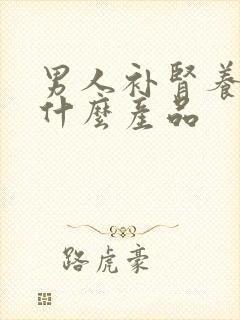 男人补腎養
什麼產品
路虎豪